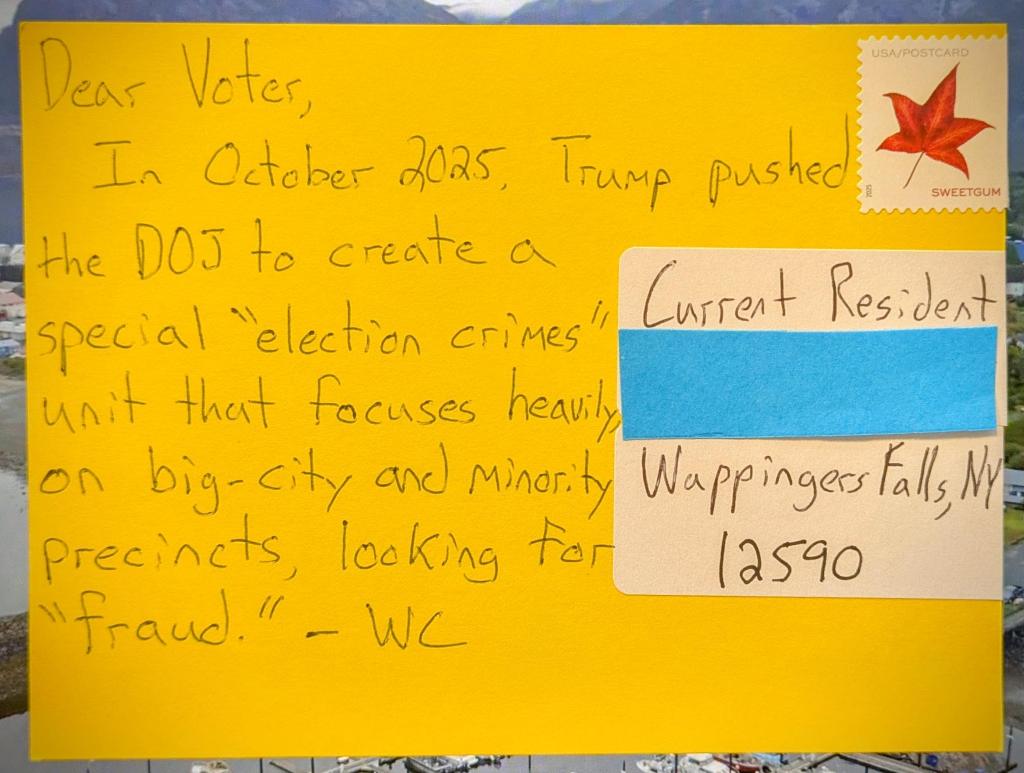 Dear Voter,
In October 2025, Trump pushed
the DOJ to create a
special "election crimes"
unit that focuses heavily
on big-city and minority
precincts, looking for
"fraud." - WC
USA/POSTCARD
2025
SWEETGUM
Current Resident
Wappingers Falls, NY
12590